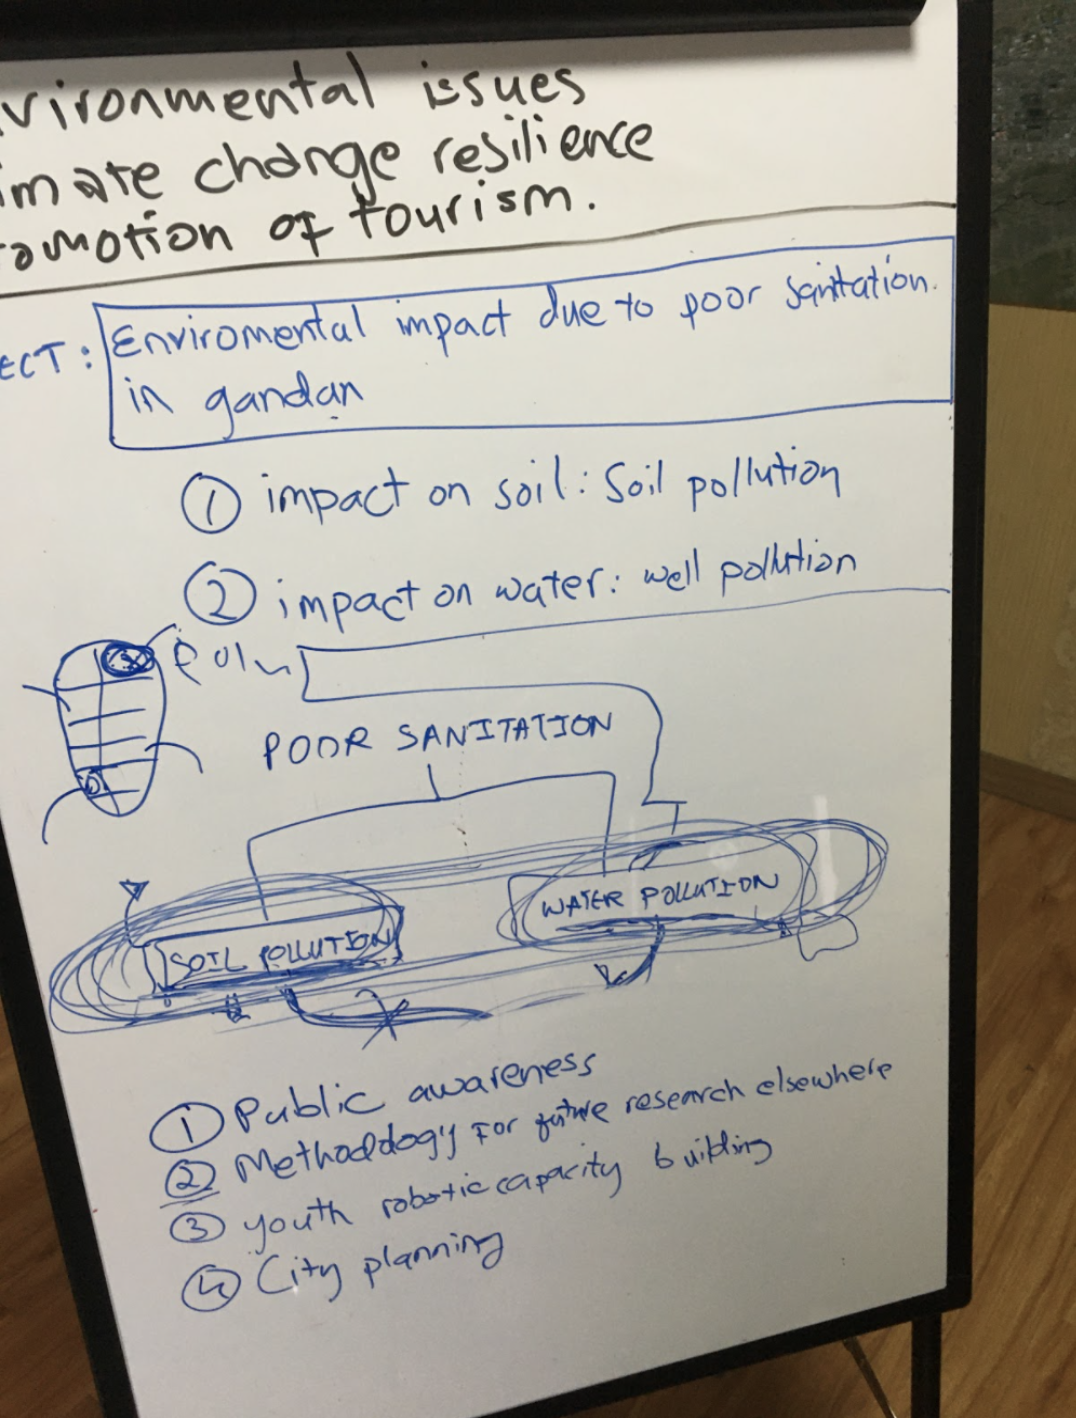 vironmental issues
imate change resilience
omotion of tourism.
ECT: Enviromental impact due to poor sanitation.
in gandan
1 impact on soil: Soil pollution
2 impact on water: well pollution
POOR SANITATION
WATER POLLUTION
SOIL POLLUTION
1 Public awareness
2 Methodology for future research elsewhere
3 youth robotic capacity building
4 City planning